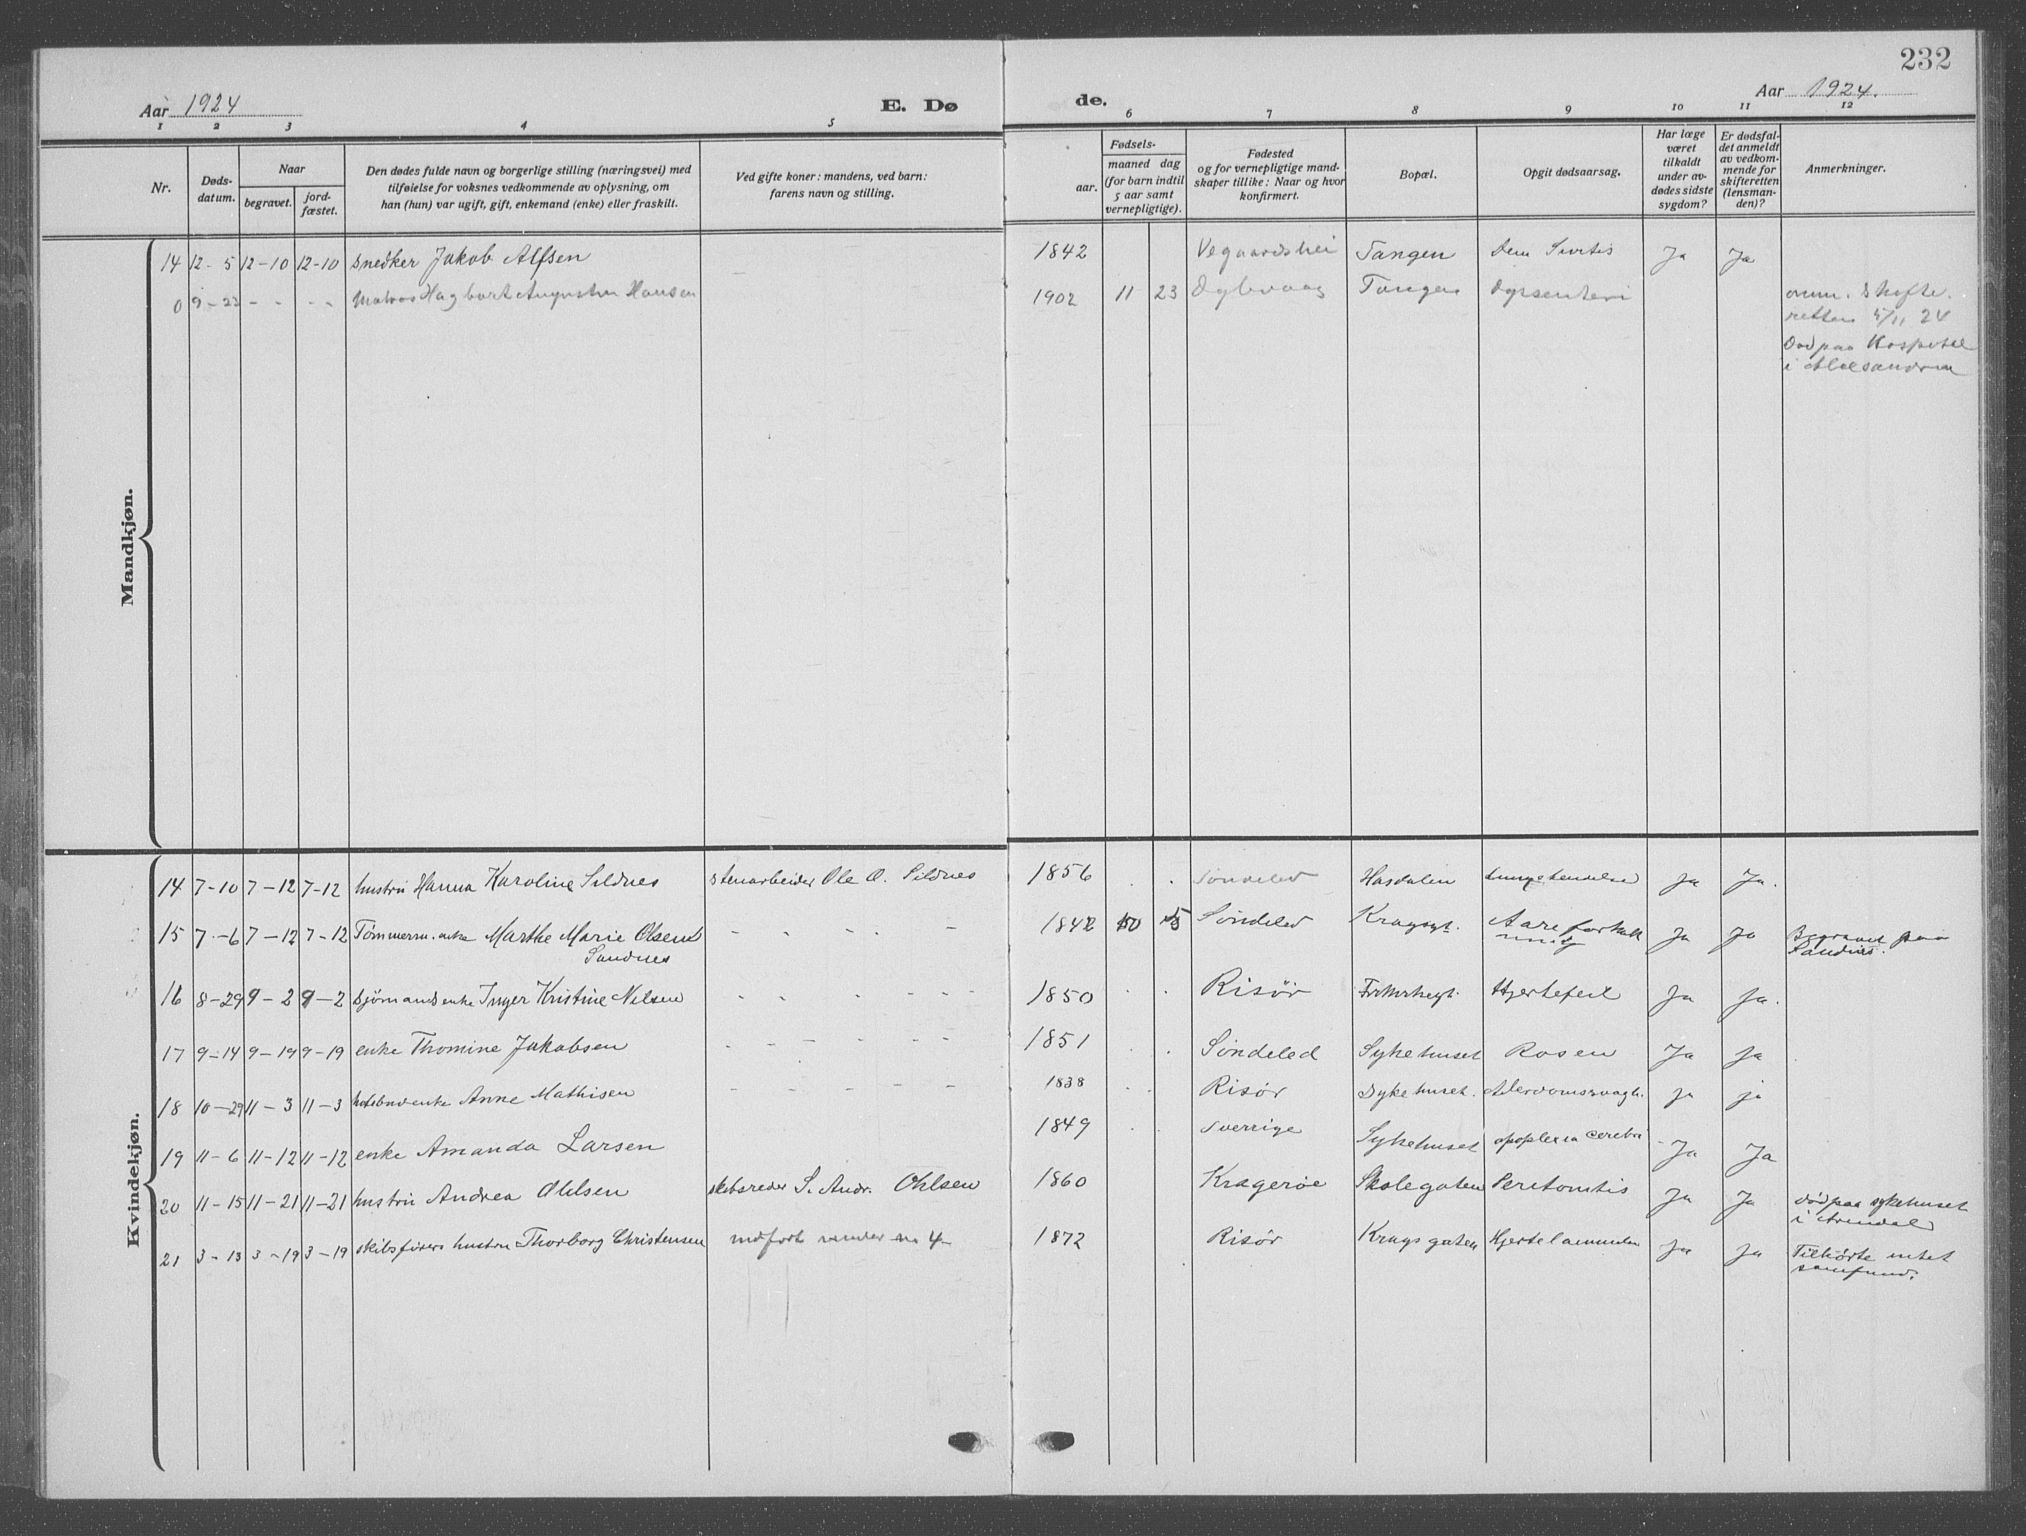 232
Aar 1924
E. Dø
de.
Aar 1924.
1 2 3 4 5 6 7 8 9 10 11 12
Nr.
Døds-
datum.
Naar
begravet.
jord-
fæstet.
Den dødes fulde navn og borgerlige stilling (næringsvei) med
tilføielse for voksnes vedkommende av oplysning, om
han (hun) var ugift, gift, enkemand (enke) eller fraskilt.
Ved gifte koner: mandens, ved barn:
farens navn og stilling.
Fødsels-
aar.
maaned dag
(for barn indtil
5 aar samt
vernepligtige).
Fødested
og for vernepligtige mand-
skaper tillike: Naar og hvor
konfirmert.
Bopæl.
Opgit dødsaarsag.
Har læge
været
tilkaldt
under av-
dødes sidste
sygdom?
Er dødsfal-
det anmeldt
av vedkom-
mende for
skifteretten
(lensman-
den)?
Anmerkninger.
Mandkjøn.
14 12-5 12-10 12-10 Snedker Jakob Alfsen 1842 Vegaardshei Tangen Dem Ja Ja
0 9-23 - - - - Matros Hagbart Hansen 1902 11 23 Tangen Dysenteri
anm. Skifte.
retten 5/11 24
Død paa Hospital
i Aleksandria
Kvindekjøn.
14 7-10 7-12 7-12 hustru Hanna Karoline Sildnes Stenarbeider Ole O. Sildnes 1856 . . Søndeled Hasdalen Ja Ja.
15 7-6 7-12 7-12 Tømmerm. enke Marthe Marie Olsen - - - - - 1842 Søndeled Kragsgt. Aareforkalk Ja Ja Begravet paa
Sandnes
ning
Sandnes.
16 8-29 9-2 9-2 Sjømands enke Inger Kristine Nilsen - - - - - 1850 . . Risør Hjertefeil Ja Ja.
17 9-14 9-19 9-19 enke Thomine Jakobsen - - - - - 1851 . . Søndeled Sykehuset Rosen Ja Ja
18 10-29 11-3 11-3 enke Anne Mathisen - - - - - 1838 . . Risør Sykehuset. Alerdomssvagh. Ja ja
19 11-6 11-12 11-12 enke Amanda Larsen 1849 . . Sverrige Sykehuset apoplexia cerebri Ja Ja
20 11-15 11-21 11-21 hustru Andrea Ohlsen skibsreder S. Andr. Ohlsen 1860 Kragerøe Skolegaten Peritonitis Ja Ja Død paa sykehuset
i Arendal
21 3-13 3-19 3-19 skibsførers hustru Thorborg Christensen indført under no 4 1872 Risør Krags gaten Hjertelammelse Ja Ja Tilhørte intet
samfund.